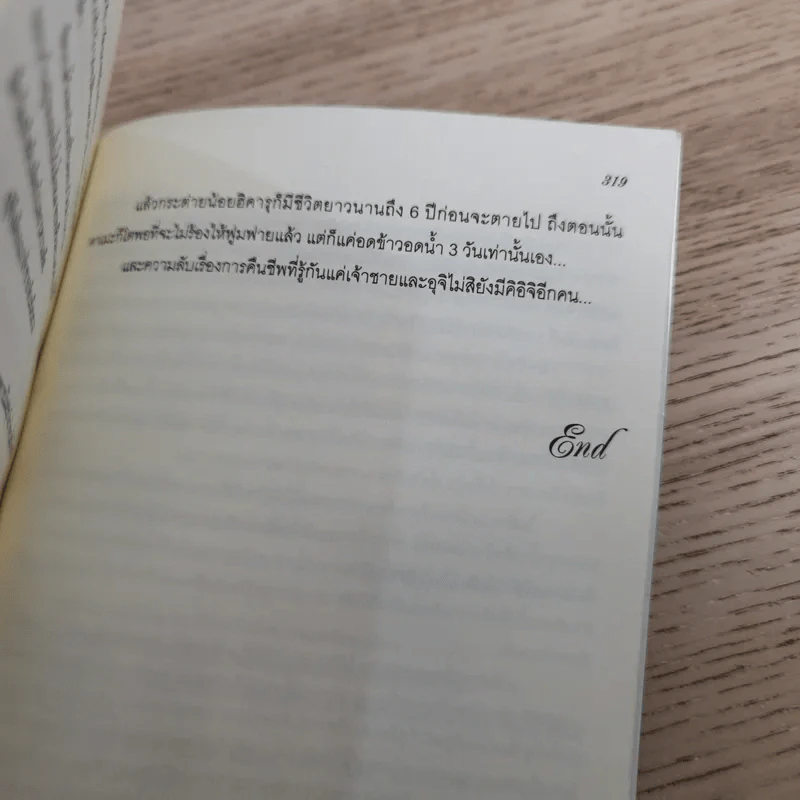 319
แล้วกระต่ายน้อยฮิคารุก็มีชีวิตยาวนานถึง 6 ปีก่อนจะตายไป ถึงตอนนั้น
ก็โตพอที่จะไม่ร้องไห้ฟูมฟายแล้ว แต่ก็แค่อดข้าวอดน้ำ 3 วันเท่านั้นเอง...
และความลับเรื่องการคืนชีพที่รู้กันแค่เจ้าชายและอุจิไม่สิยังมีคิอิจิอีกคน...
End